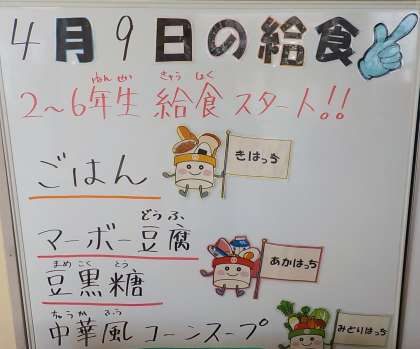 4月9日の給食
ねんせい きゅうしょく
2～6年生 給食 スタート!!
ごはん
きはっち
どうふ
マーボー豆腐
あかはっち
まめ こく とう
豆黒糖
ちゅうか ふう
中華風コーンスープ
みどりはっち